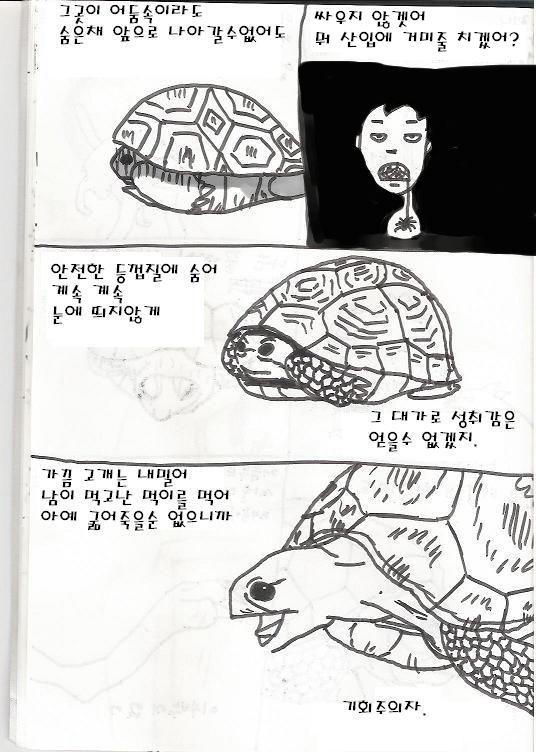 그곳이 어둠속이라도
숨은채 앞으로 나아갈수없어도
싸우지 않겟어
뭐 산입에 거미줄 치겠어?
안전한 등껍질에 숨어
계속 계속
눈에 띄지않게
그 대가로 성취감은
얻을수 없겠지.
가끔 고개는 내밀어
남이 먹고난 먹이를 먹어
아예 굶어죽을순 없으니까
기회주의자.